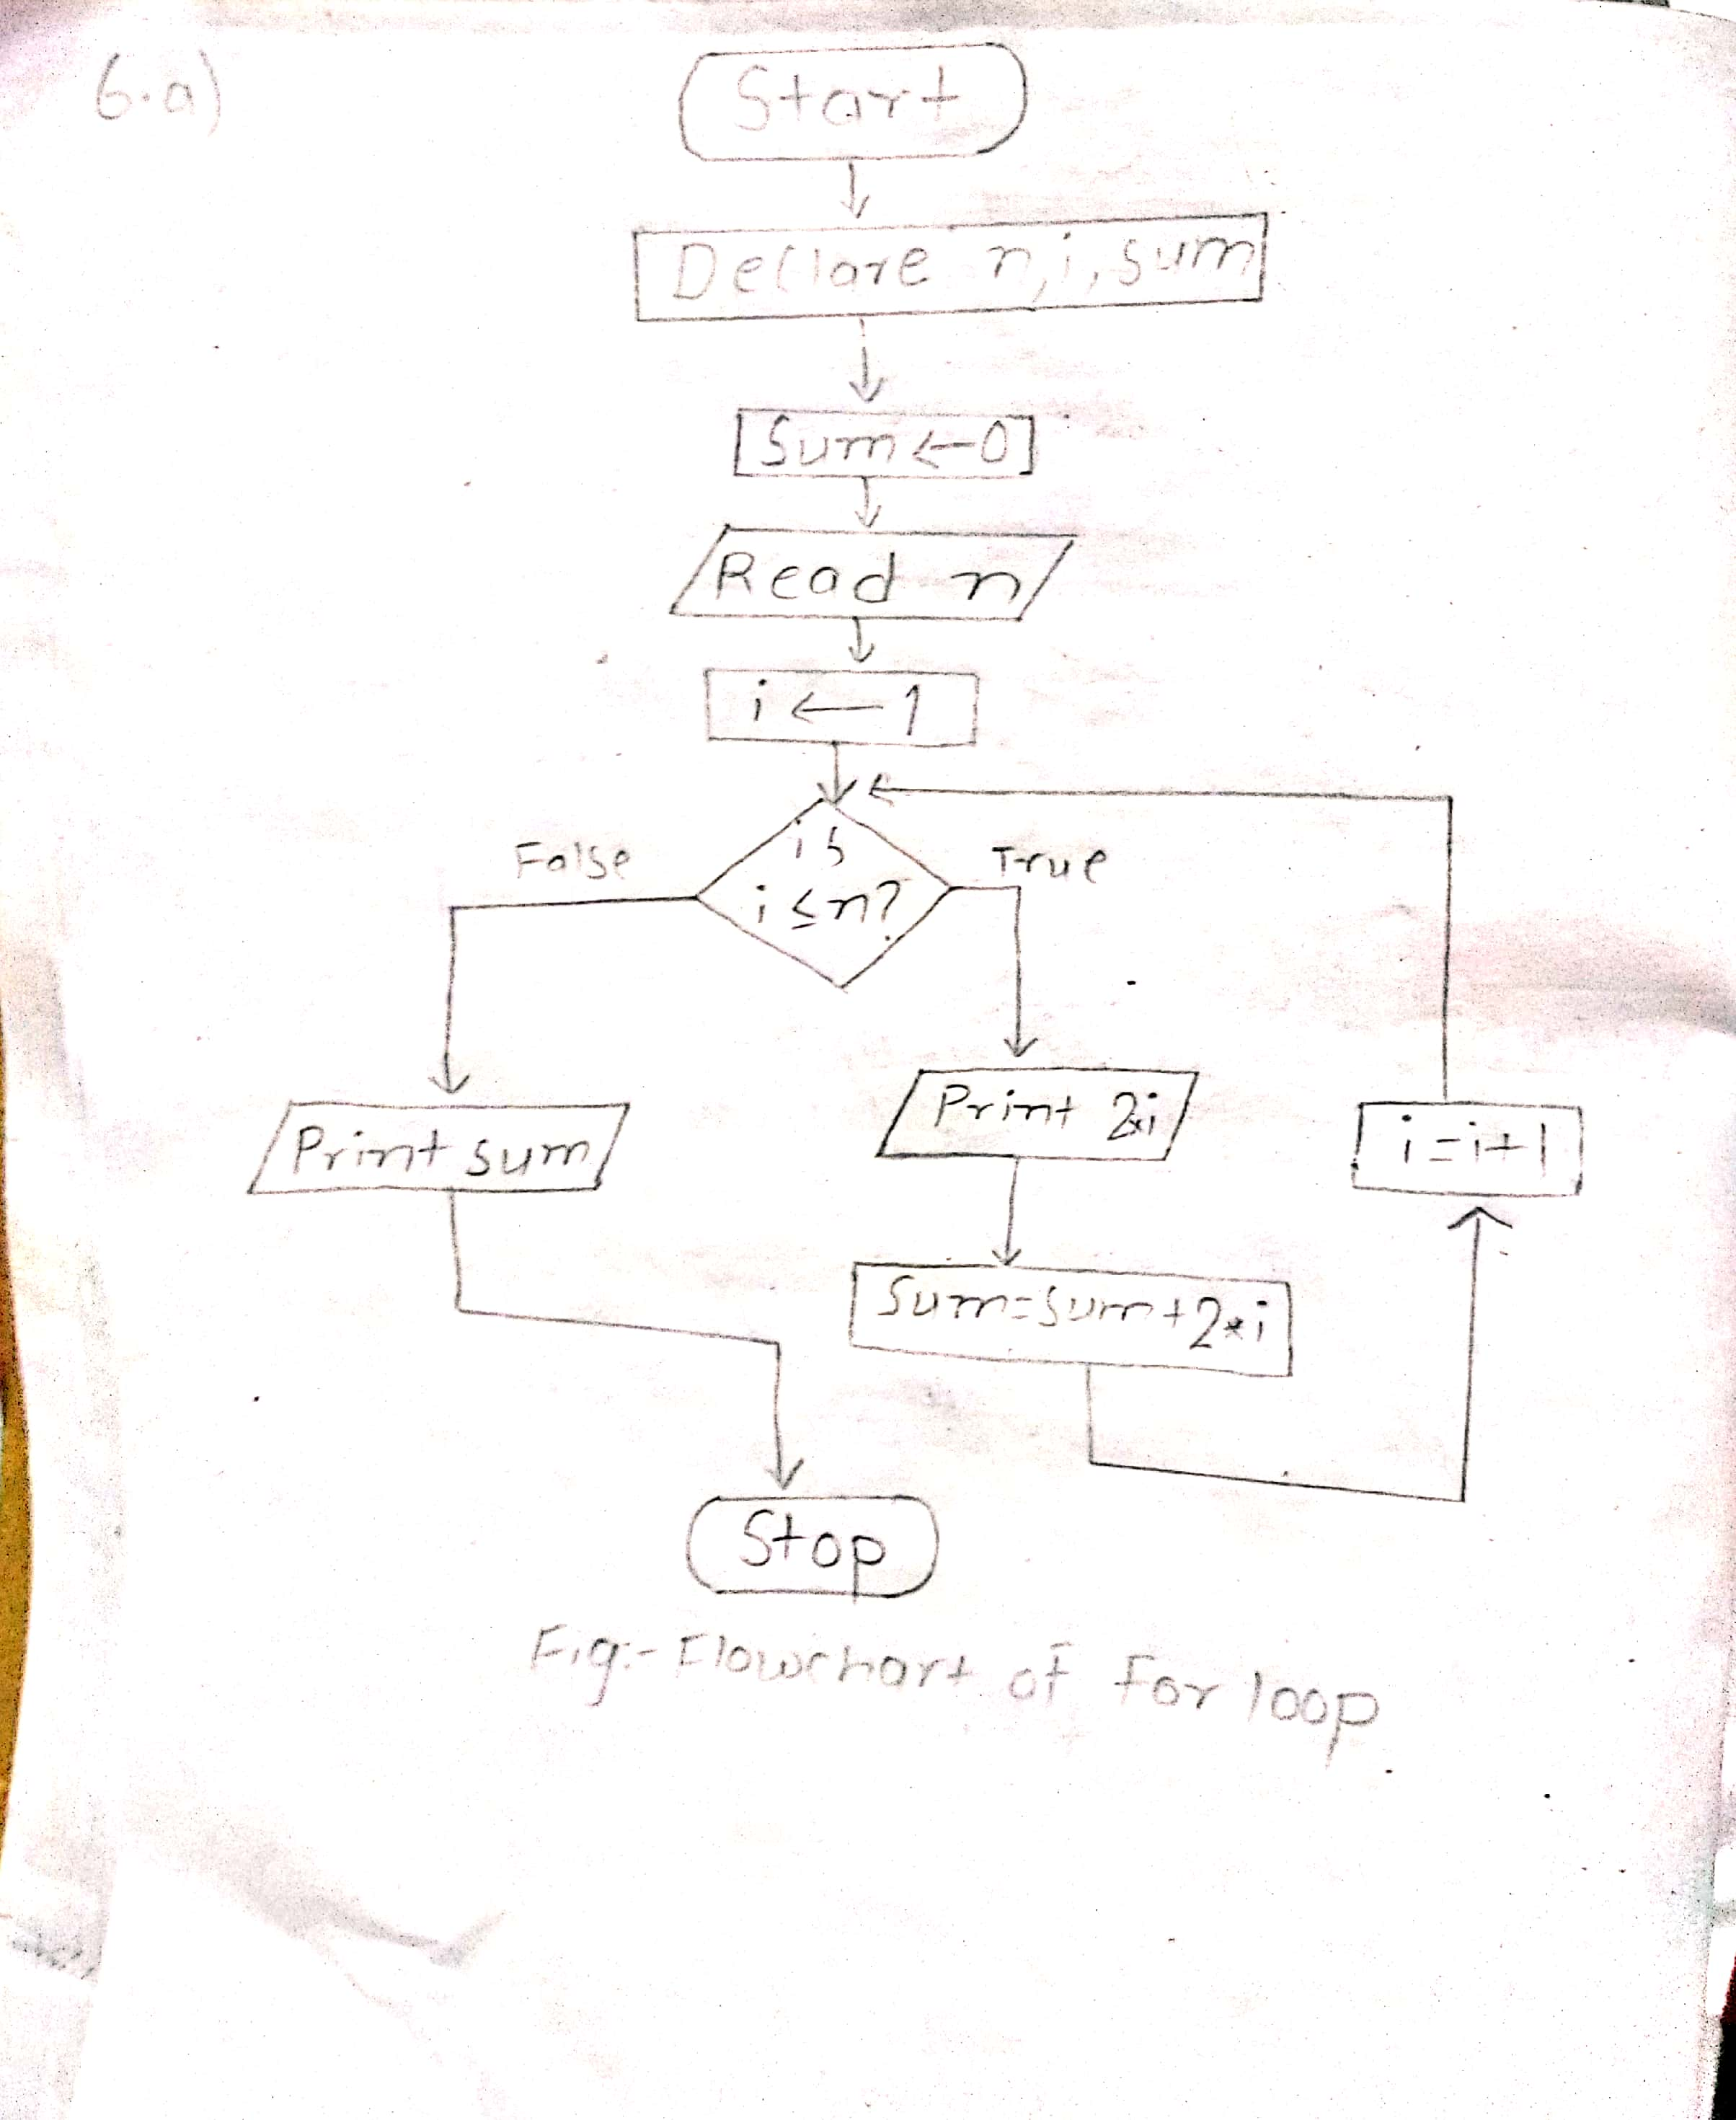 6.a)
Start
Declare n,i,sum
Sum ← 0
Read n
i ← 1
is
i ≤ n?
False
True
Print sum
Print 2*i
i=i+1
Sum=sum+2*i
Stop
Fig:- Flowchart of for loop